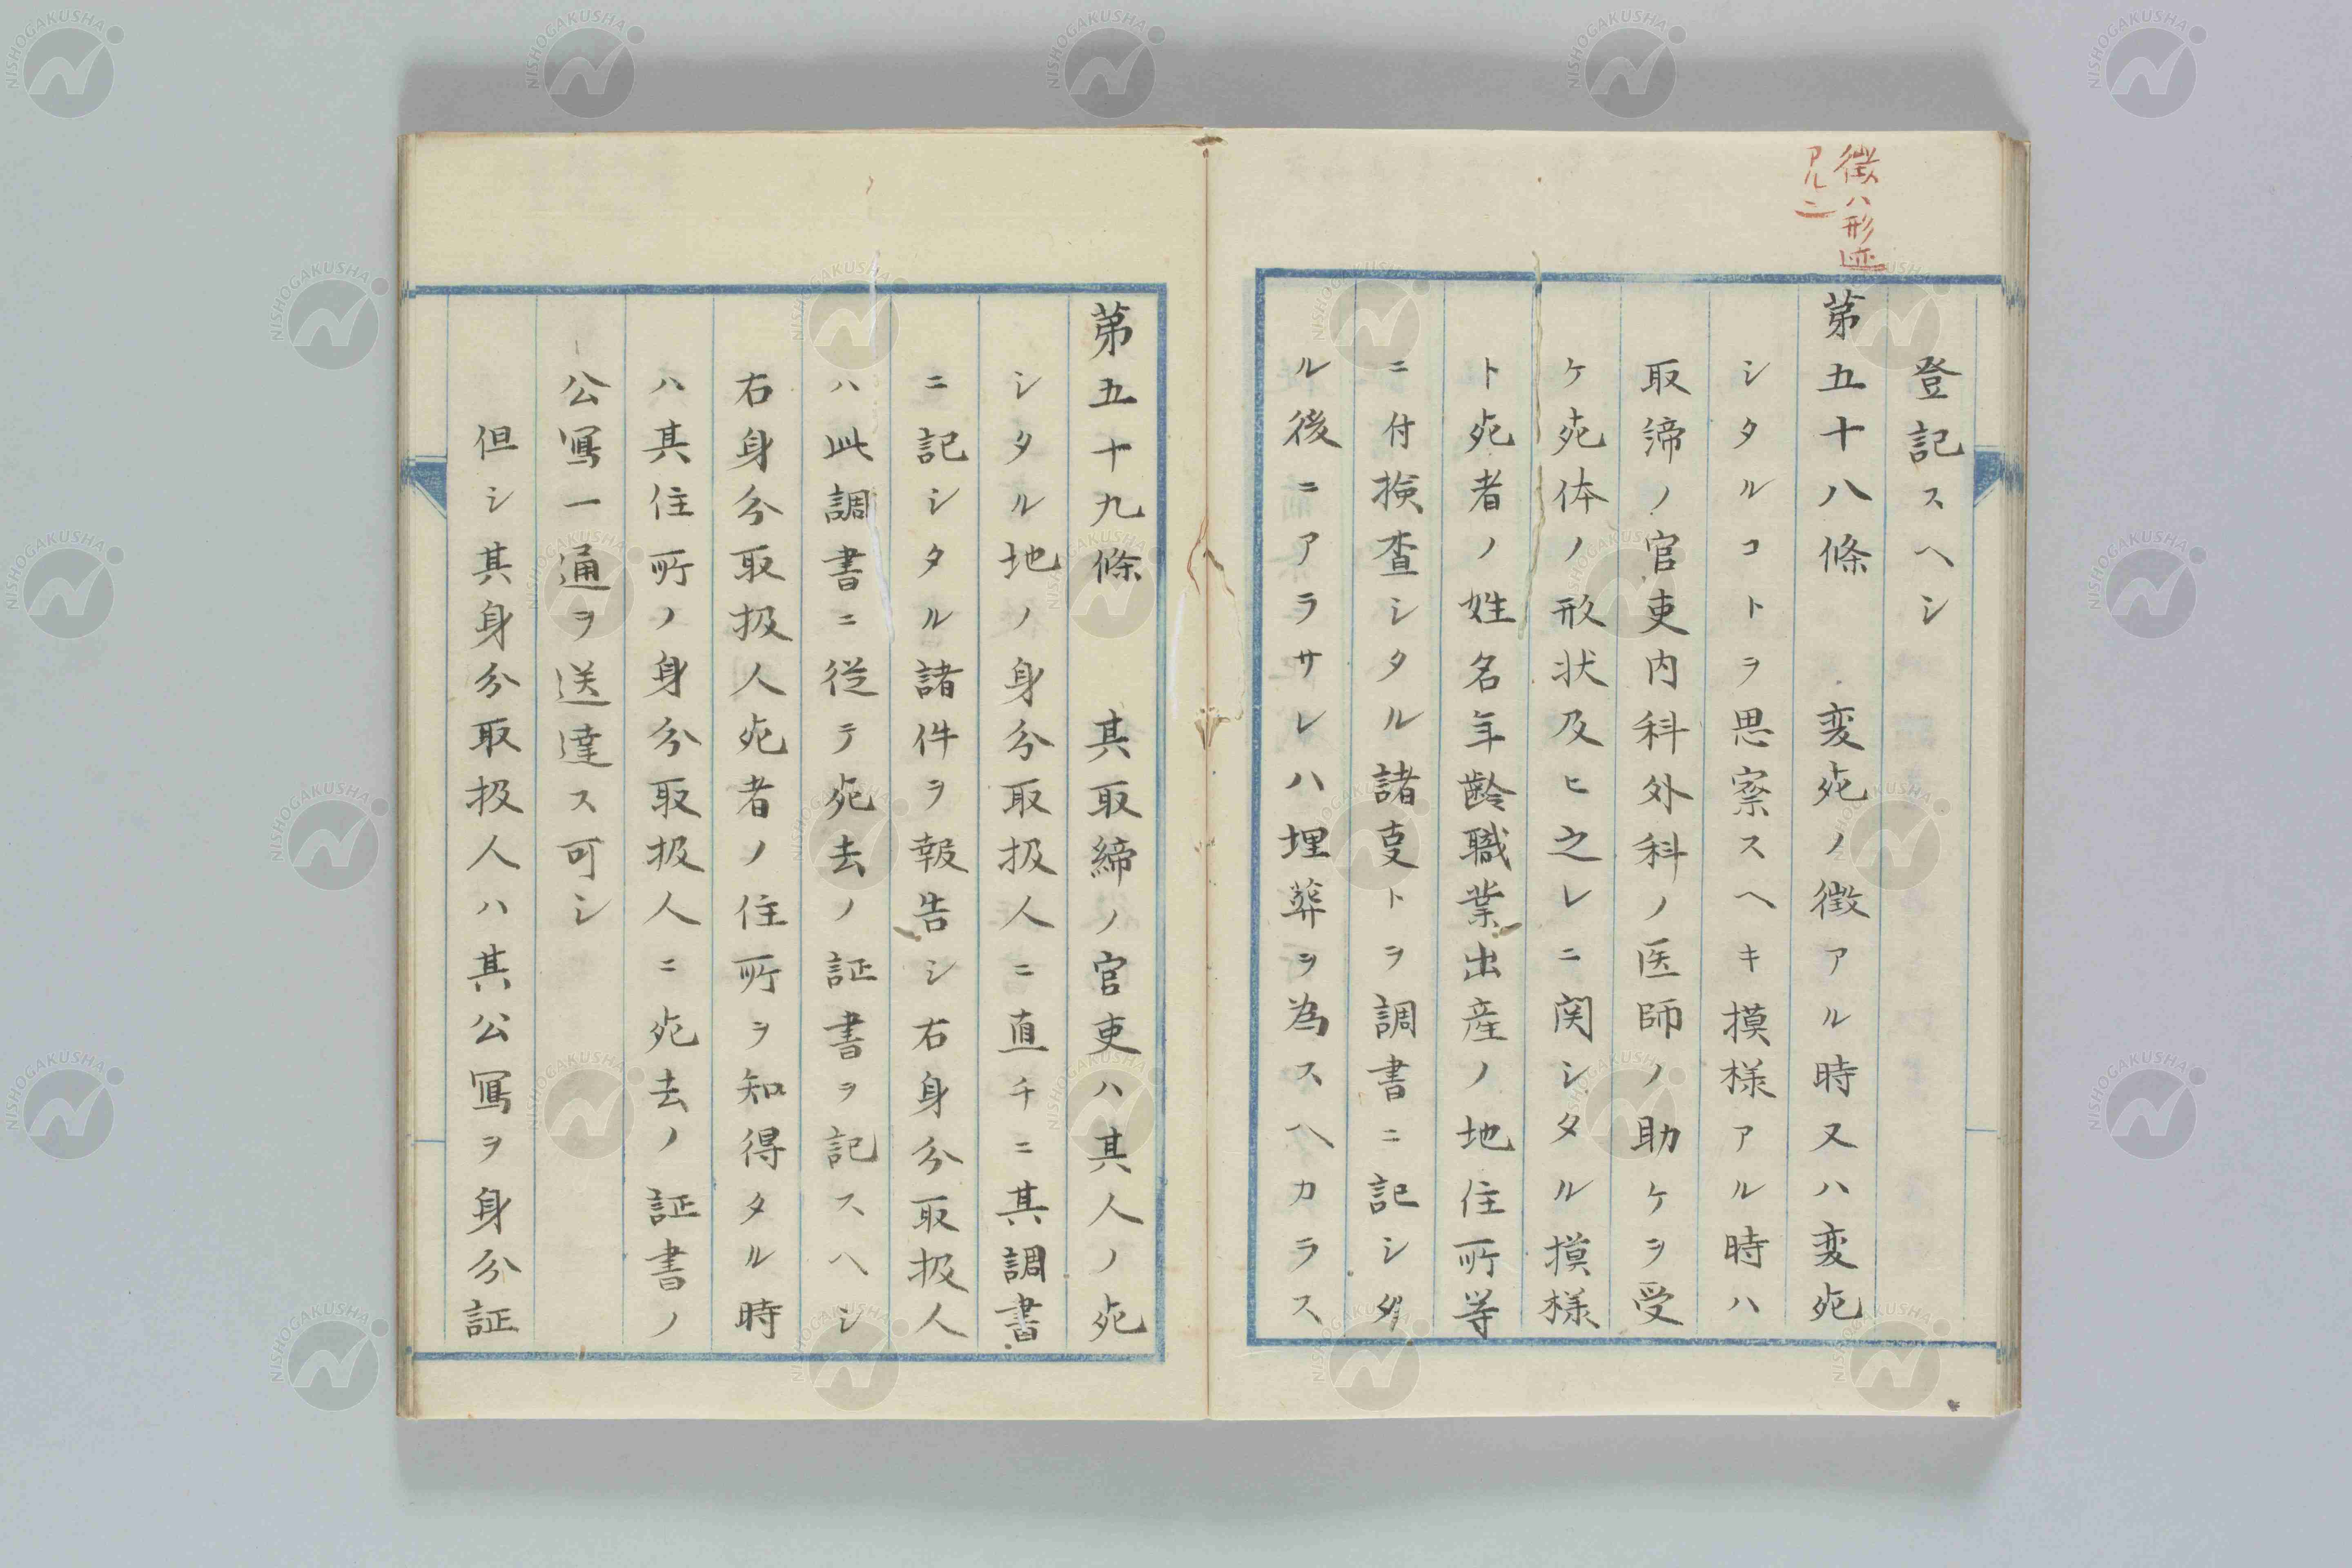 徴ハ形迹
アルニ
登記スヘシ
第五十八條 変死ノ徴アル時又ハ変死
シタルコトヲ思察スヘキ摸様アル時ハ
取締ノ官吏内科外科ノ医師ノ助ケヲ受
ケ死体ノ形状及ヒ之レニ関シタル摸様
ト死者ノ姓名年齢職業出産ノ地住所等
ニ付検査シタル諸事トヲ調書ニ記シタ
ル後ニアラサレハ埋葬ヲ為スヘカラス
第五十九條 其取締ノ官吏ハ其人ノ死
シタル地ノ身分取扱人ニ直チニ其調書
ニ記シタル諸件ヲ報告シ右身分取扱人
ハ此調書ニ従テ死去ノ証書ヲ記スヘシ
右身分取扱人死者ノ住所ヲ知得タル時
ハ其住所ノ身分取扱人ニ死去ノ証書ノ
公寫一通ヲ送達ス可シ
但シ其身分取扱人ハ其公寫ヲ身分証
NISHOGAKUSHA